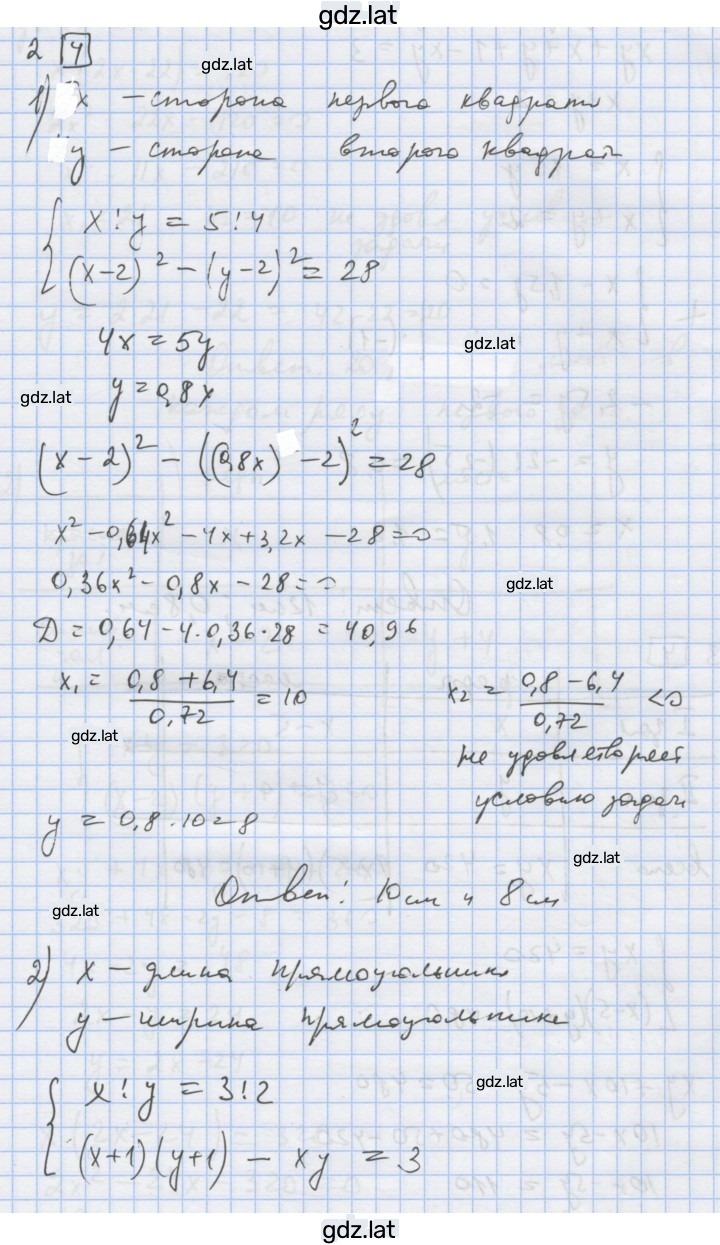 gdz.lat
2 4
gdz.lat
1) x – сторона первого квадрата
y – сторона второго квадрата
x : y = 5 : 4
(x-2)² – (y-2)² = 28
4x = 5y
gdz.lat
y = 0,8x
gdz.lat
(x – 2)² – ((0,8x) – 2)² = 28
x² – 0,64x² – 4x + 3,2x – 28 = 0
0,36x² – 0,8x – 28 = 0
gdz.lat
Д = 0,64 – 4·0,36·28 = 40,96
x₁ = (0,8 + 6,4)/0,72 = 10 x₂ = (0,8 – 6,4)/0,72 < 0
gdz.lat
не удовлетворяет
условию задачи
y = 0,8 · 10 = 8
gdz.lat
Ответ: 10 см и 8 см
gdz.lat
2) x – длина прямоугольника
y – ширина прямоугольника
x : y = 3 : 2
gdz.lat
(x+1)(y+1) – xy = 3
gdz.lat